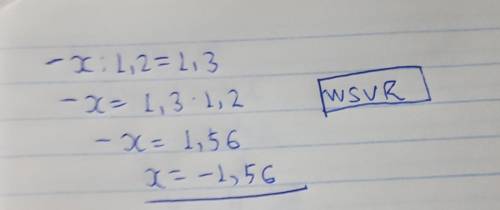 -x:1,2=1,3
-x= 1,3·1,2
WSVR
-x= 1,56
x=-1,56